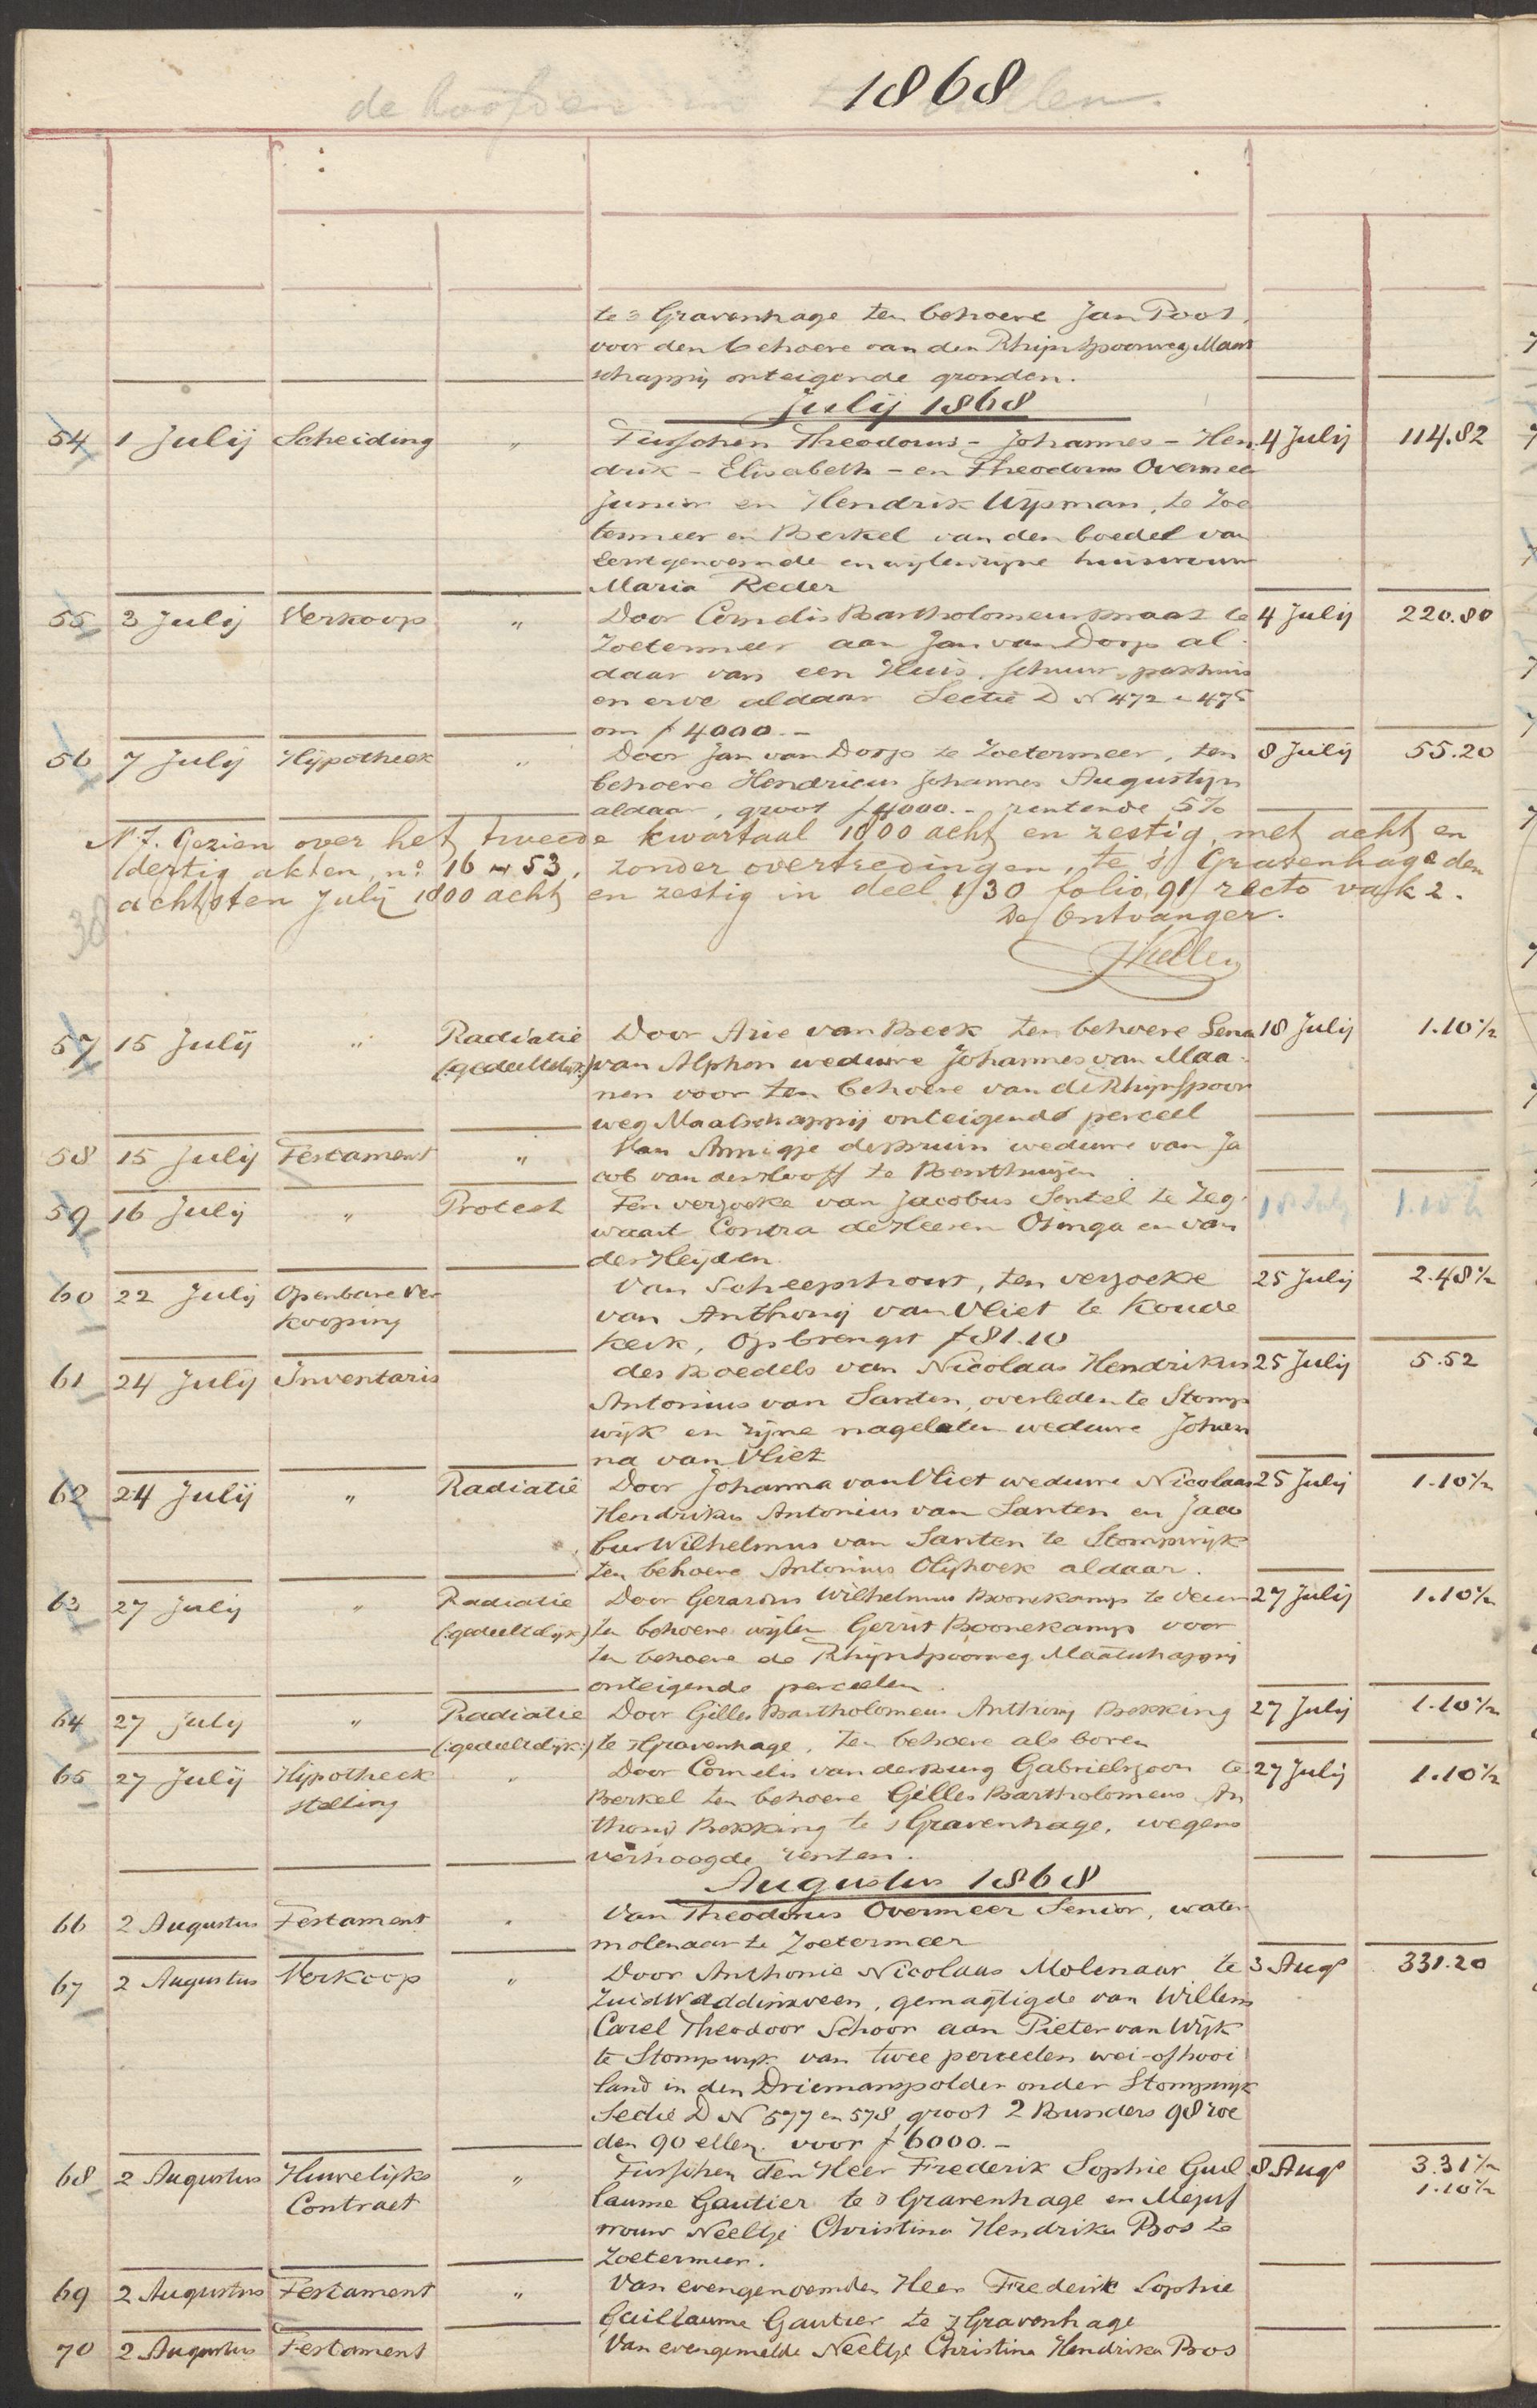 1868
te s Gravenhage ten behoeve Jan Poot,
voor den behoeve van den Rhijnspoorweg Maat
schappij onteigende gronden.
Julij 1868
54 1 Julij Scheiding " Tusschen Theodorus - Johannes - Hen 4 Julij 114.82
drik - Elisabeth - en Theodorus Overmeer
junior en Hendrik Wijsman, te Zoe
termeer en Berkel van den boedel van
eerstgenoemde en wijlen zijne huisvrouw
Maria Reder
55 3 Julij Verkoop " Door Cornelis Bartholomeus Kraat te 4 Julij 220.80
Zoetermeer aan Jan van Dorp al
daar van een Huis, schuur, pakhuis
en erve aldaar Sectie D N 472 - 475
om f 4000.-
56 7 Julij Hypotheek " Door Jan van Dorp te Zoetermeer, ten 8 Julij 55.20
behoeve Hendricus Johannes Augustijn
aldaar, groot f 4000.- rentende 5%
N 7. Gezien over het tweede kwartaal 1800 acht en zestig, met acht en
dertig akten, no 16 53, zonder overtredingen, te 's Gravenhage den
achtsten Julij 1800 acht en zestig in deel 130 folio 91 recto vak 2.
38
De Ontvanger.
57 15 Julij " Radiatie Door Arie van Beek ten behoeve Lena 18 Julij 1.10½
(:gedeeltelijk:) van Alphen weduwe Johannes van Maa-
nen voor ten behoeve van de Rhijnspoor
weg Maatschappij onteigende perceel
58 15 Julij Testament " Van Annigje de Bruin weduwe van Ja
cob van der Hooff te Benthuijzen
59 16 Julij " Protest Ten verzoeke van Jacobus Sentel te Zeg- 18 July 1.10½
waart Contra de Heeren Osinga en van
der Heijden.
60 22 Julij Openbare Ver Van Scheepshout, ten verzoeke 25 Julij 2.48½
kooping van Anthonij van Vliet te Koude
kerk, Opbrengst f 81.10
61 24 Julij Inventaris des Boedels van Nicolaas Hendrikus 25 Julij 5.52
Antonius van Santen, overleden te Stomp
wijk en zijne nagelaten weduwe Johan
na van Vliet
62 24 Julij " Radiatie Door Johanna van Vliet weduwe Nicolaas 25 Julij 1.10½
Hendrikus Antonius van Santen en Jaco
bus Wilhelmus van Santen te Stompwijk
ten behoeve Antonius Olijhoek aldaar.
63 27 July " Radiatie Door Gerardus Wilhelmus Boonekamp te Veur 27 Julij 1.10½
(:gedeeltelijk:) ten behoeve wijlen Gerrit Boonekamp voor
ten behoeve de Rhijnspoorweg Maatschappij
onteigende perceelen.
64 27 July " Radiatie Door Gilles Bartholomeus Anthony Bokking 27 Julij 1.10½
(:gedeeltelijk:) te sGravenhage, ten behoeve als boven
65 27 Julij Hypotheek " Door Cornelis van der Burg Gabrielszoon te 27 Julij 1.10½
stelling Berkel ten behoeve Gilles Bartholomeus An
thonij Bokking te sGravenhage, wegens
verhoogde renten.
Augustus 1868
66 2 Augustus Testament " Van Theodorus Overmeer Senior, water
molenaar te Zoetermeer
67 2 Augustus Verkoop " Door Anthonie Nicolaas Molenaar te 3 Augs 331.20
Zuid Waddinxveen, gemagtigde van Willem
Carel Theodoor Schoor aan Pieter van Wijk
te Stompwijk van twee perceelen wei-of hooi
land in den Driemanspolder onder Stompwijk
Sectie D N 577 en 578, groot 2 Bunders 98 roe
den 90 ellen. voor f 6000.-
68 2 Augustus Huwelijks " Tusschen den Heer Frederik Sophie Guil 8 Augs 3.31½
Contract laume Gautier te s Gravenhage en Mejuf 1.10½
vrouw Neeltje Christina Hendrika Bos te
Zoetermeer.
69 2 Augustus Testament " Van evengenoemden Heer Frederik Sophie
Guillaume Gautier te s Gravenhage
70 2 Augustus Testament Van evengemelde Neeltje Christina Hendrika Bos